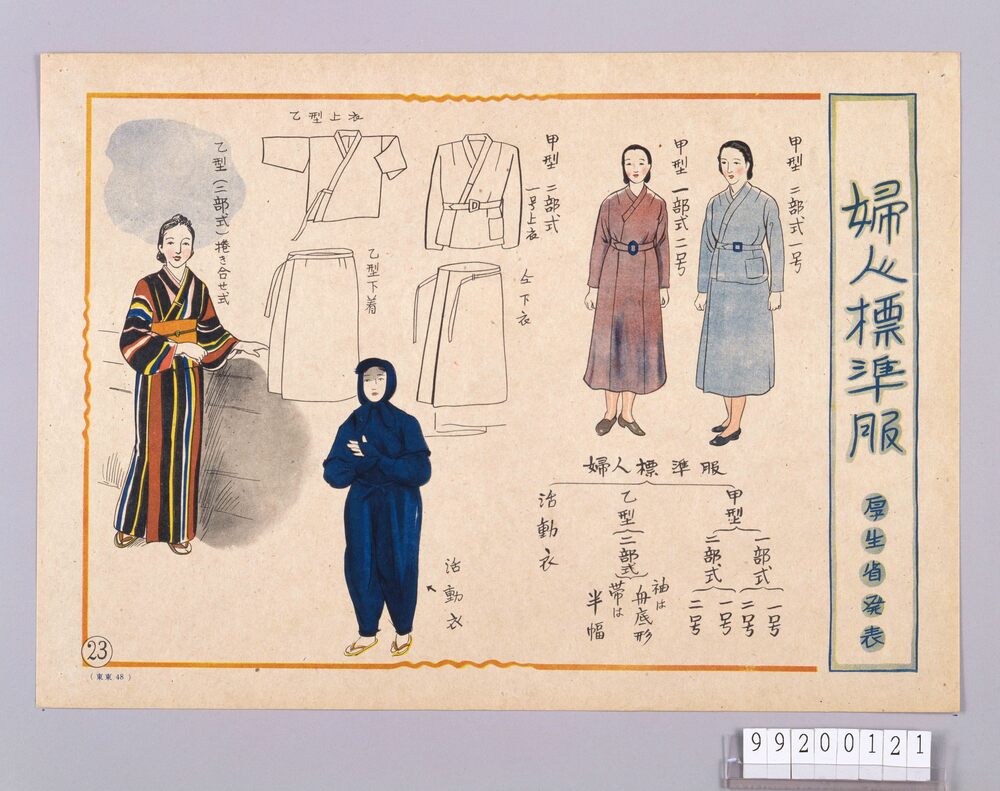 婦人標準服
厚生省発表
甲型 二部式一号
甲型 一部式二号
甲型 二部式
一号上衣
仝下衣
乙型上衣
乙型下着
乙型(二部式)捲き合せ式
活動衣
婦人標準服
甲型
一部式
一号
二号
二部式
一号
二号
乙型
二部式
袖は
舟底形
帯は
半幅
活動衣
23
(東東 48)
99200121